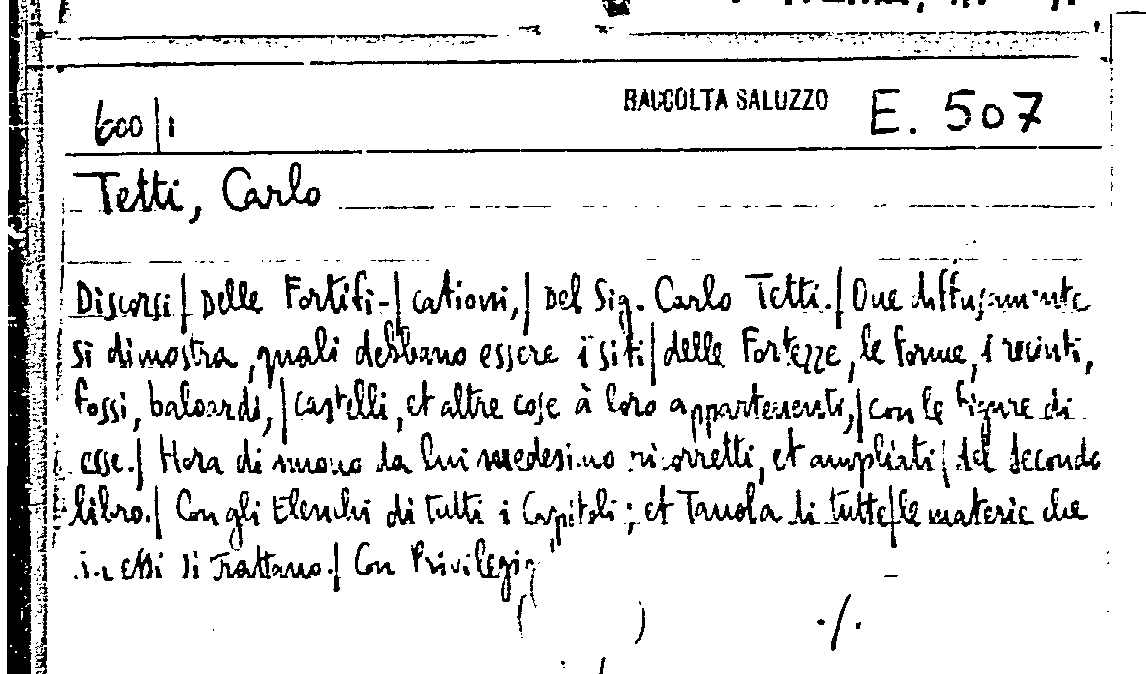 600/1 RACCOLTA SALUZZO E. 507
Tetti, Carlo
Discorsi | Delle Fortifi-| cationi, | Del Sig. Carlo Tetti. | Oue diffusamente
si dimostra, quali debbano essere i siti | delle Fortezze, le forme, i recinti,
fossi, baloardi, | castelli, et altre cose à loro appartenenti, | con le figure di
esse. | Hora di nuouo da lui medesimo ricorretti, et ampliati | del secondo
libro. | Con gli Elenchi di tutti i Capitoli; et Tauola di tutte | le materie che
in essi si trattano. | Con Privilegio
( ) ./.